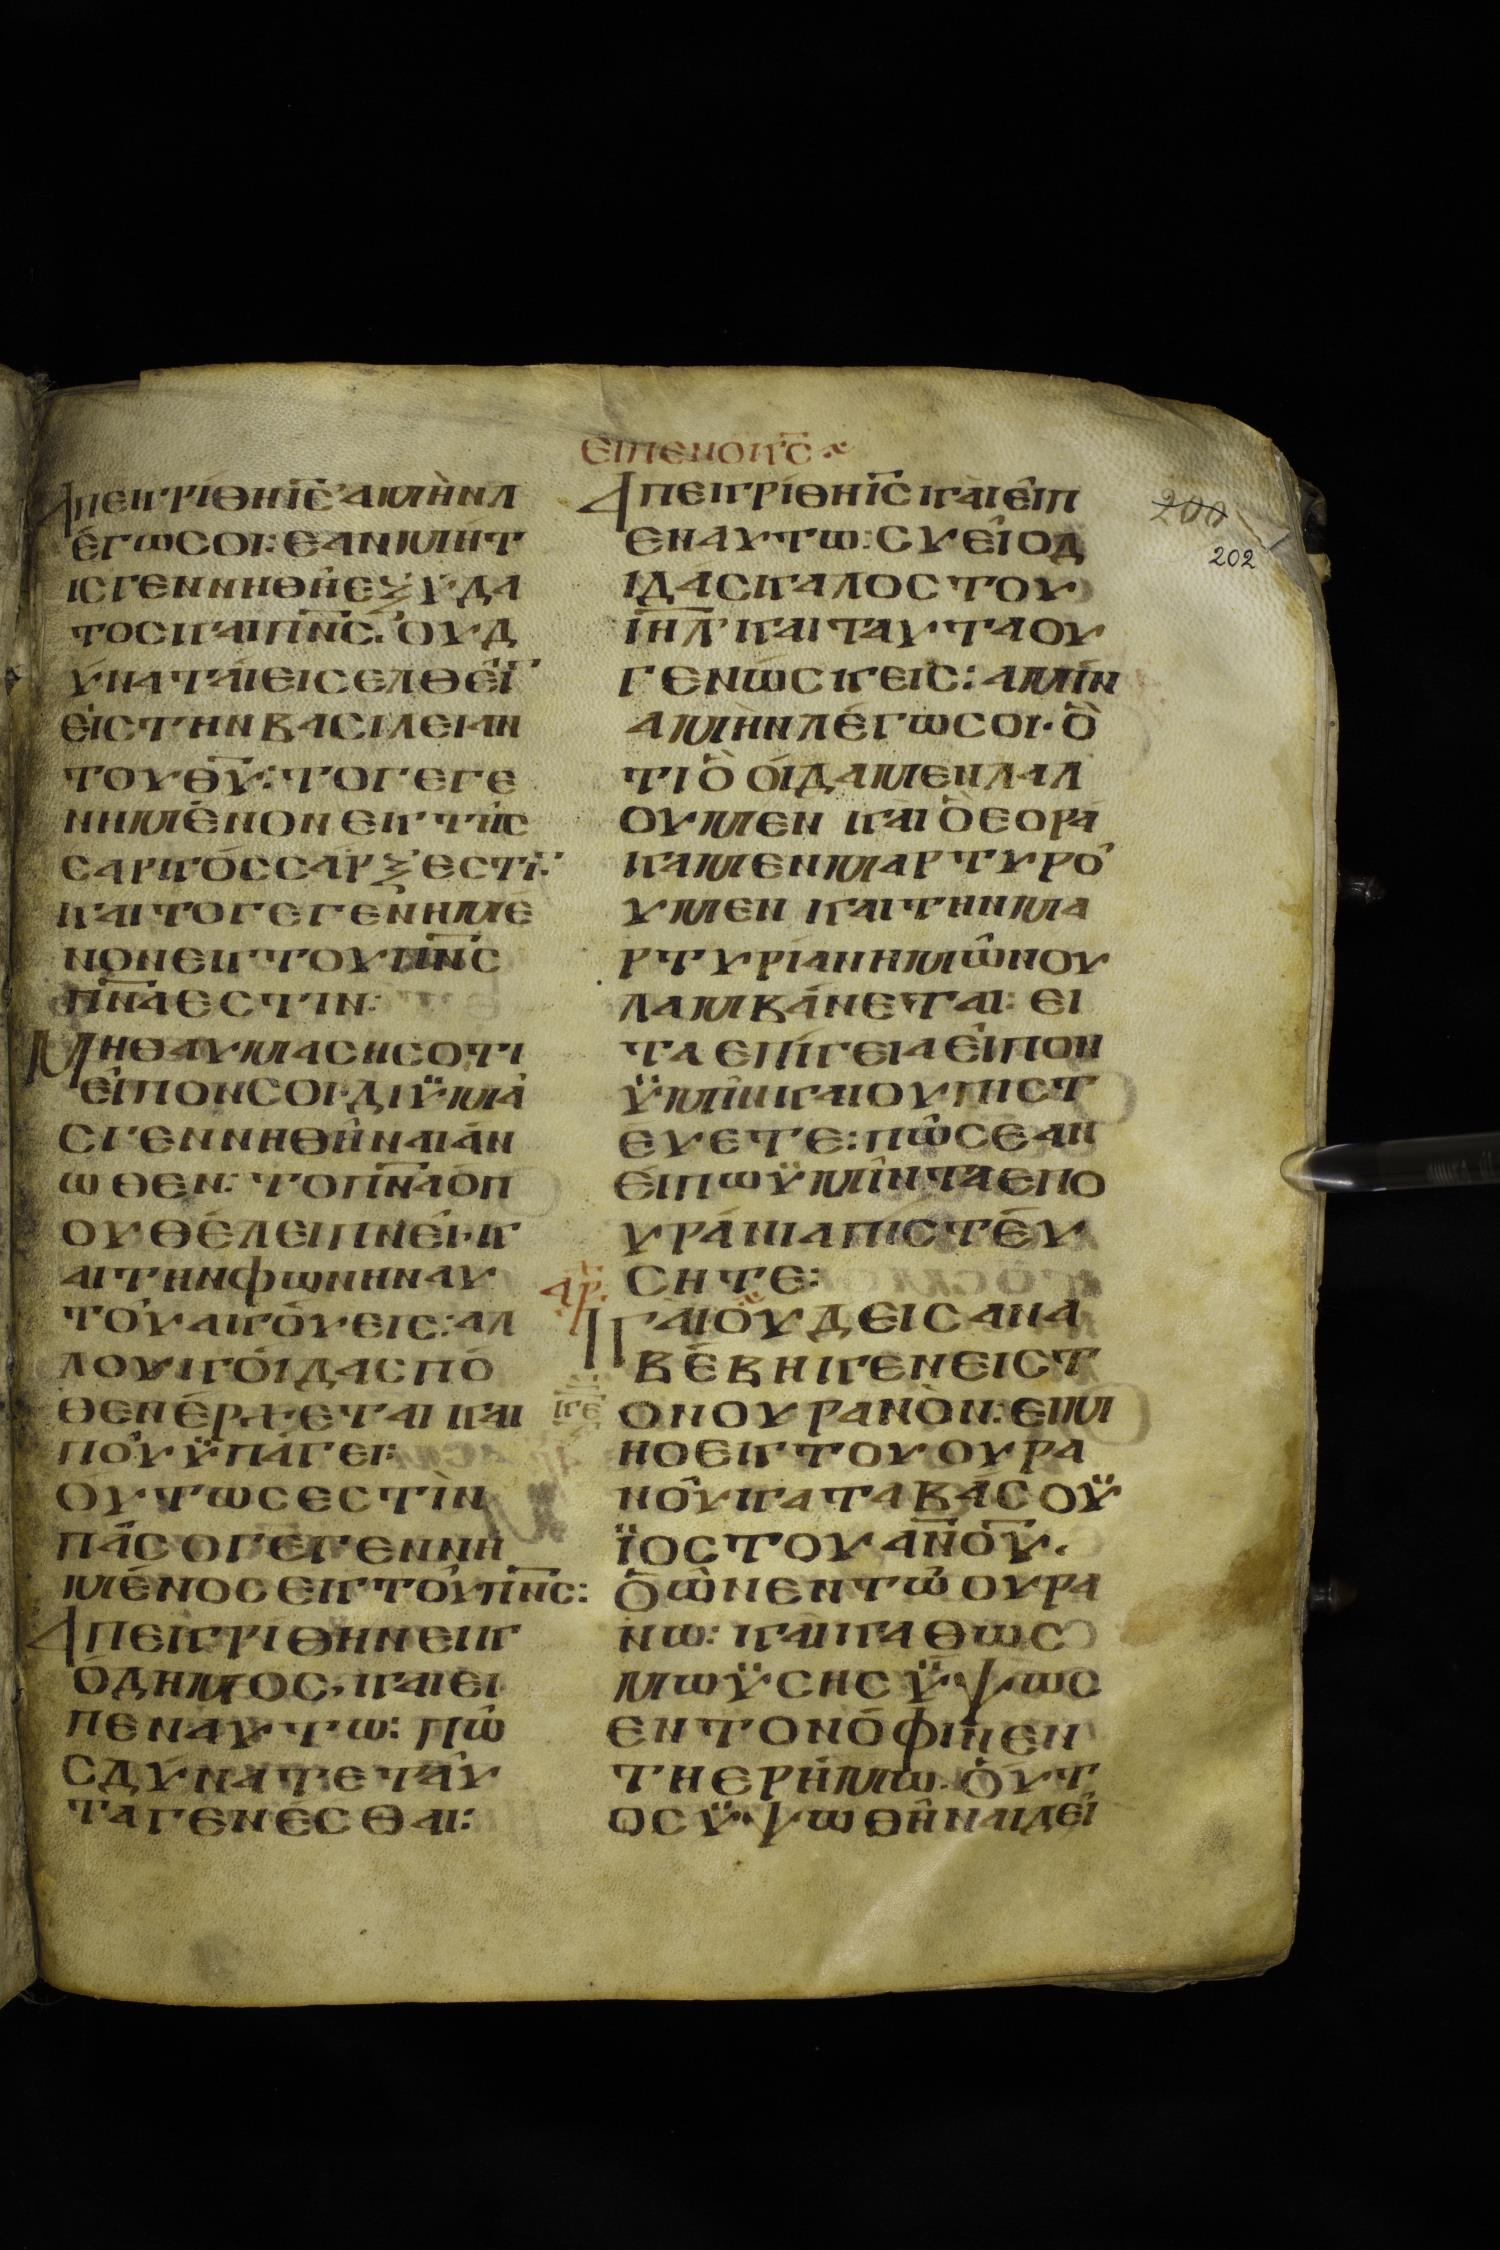 ΕΙΠΕΝ Ο Κ̅Σ̅
200
202
ἈΠΕΚΡΊΘΗ Ι̅Σ̅ ἈΜῊΝ Λ
ΈΓΩ ΣΟΙ: ΕΑΝ ΜΉ Τ
ΙΣ ΓΕΝΝΗΘΗ͂ ΕΞ ΎΔΑ
ΤΟΣ ΚΑΙ Π̅Ν̅Σ̅. ΟΥ Δ
ΎΝΑΤΑΙ ΕΙΣΕΛΘΕΙ͂
ΕΙΣ ΤῊΝ ΒΑΣΙΛΕΙΑΝ
ΤΟΥ Θ̅Υ̅: ΤΟ ΓΕΓΕ
ΝΗΜΈΝΟΝ ΕΚ ΤΗΣ
ΣΑΡΚΌΣ ΣΑΡΞ ΕΣΤΙ:
ΚΑΙ ΤΟ ΓΕΓΕΝΗΜΈ
ΝΟΝ ΕΚ ΤΟΥ Π̅Ν̅Σ̅
Π̅Ν̅Α̅ ΕΣΤΙΝ:
ΜΗ ΘΑΥΜΑΣΗΣ ΟΤΙ
ΕΙΠΟΝ ΣΟΙ· ΔΙ ΫΜΑ
Σ ΓΕΝΝΗΘΗ͂ΝΑΙ ΆΝ
ΩΘΕΝ: ΤΟ Π̅Ν̅Α̅ ΌΠ
ΟΥ ΘΈΛΕΙ ΠΝΕΙ͂· Κ
ΑΙ ΤΗΝ ΦΩΝΗΝ ΑΥ
ΤΟΥ ΑΚΌΥΕΙΣ: ΑΛ
Λ ΟΥΚ ΌΙΔΑΣ ΠΌ
ΘΕΝ ΈΡΧΕΤΑΙ ΚΑΙ
ΠΟΥ ΫΠΆΓΕΙ:
ΟΎΤΩΣ ΕΣΤῚΝ
ΠΑ͂Σ Ο ΓΕΓΕΝΝΗ
ΜΈΝΟΣ ΕΚ ΤΟΥ Π̅Ν̅Σ̅:
ἈΠΕΚΡΊΘΗ ΝΕΙΚ
ΌΔΗΜΟΣ, ΚΑΙ ΕΙ
ΠΕΝ ΑΥΤΩ: ΠΩ͂
Σ ΔΎΝΑΤΕ ΤΑΥ
ΤΑ ΓΕΝΈΣΘΑΙ:
ἈΠΕΚΡΊΘΗ Ι̅Σ̅ ΚΑῚ ΕΙ͂Π
ΕΝ ΑΥΤΩ: ΣΥ ΕΙ͂ Ο Δ
ΙΔΆΣΚΑΛΟΣ ΤΟΥ
Ι̅Η̅Λ̅ ΚΑΙ ΤΑΥΤΑ ΟΥ
ΓΕΝΏΣΚΕΙΣ: ΑΜΉΝ
ΑΜῊΝ ΛΈΓΩ ΣΟΙ· Ὂ
ΤΙ Ὃ ΟΊΔΑΜΕΝ ΛΑΛ
ΟΥΜΕΝ ΚΑΙ Ὃ ΕΟΡΆ
ΚΑΜΕΝ ΜΑΡΤΥΡΟ
ΥΜΕΝ ΚΑΙ ΤΗΝ ΜΑ
ΡΤΥΡΊΑΝ ΗΜΩ͂Ν ΟΥ
ΛΑΜΒΆΝΕΤΑΙ: ΕΙ
ΤΑ ΕΠΊΓΕΙΑ ΕΙ͂ΠΟΝ
ΫΜΙ͂Ν ΚΑΙ ΟΥ ΠΙΣΤ
ΕΥΕΤΕ: ΠΩ͂Σ ΕΑΝ
ΕΊΠΩ ΫΜΙ͂Ν ΤΑ ΕΠΟ
ΥΡΆΝΙΑ ΠΙΣΤΈΥ
ΣΗΤΕ:
ΑΡ
ΚΑῚ ΟΥΔΕΙΣ ΑΝΑ
ΒΈΒΗΚΕΝ ΕΙΣ Τ
ΚΕ
ΟΝ ΟΥΡΑΝῸΝ: ΕΙ Μ
Η Ο ΕΚ ΤΟΥ ΟΥΡΑ
ΝΟΥ͂ ΚΑΤΑΒΆΣ Ο Ϋ
ΪΟΣ ΤΟΥ Α̅Ν̅Ο̅Υ̅.
Ὃ ῺΝ ΕΝ ΤΩ͂ ΟΥΡΑ
ΝΩ: ΚΑῚ ΚΑΘΩΣ
ΜΩΫΣΗΣ ΫΨΩΣ
ΕΝ ΤΟΝ ΌΦΙΝ ΕΝ
ΤΗ ΕΡΉΜΩ. ΟΎΤ
ΟΣ ΫΨΩΘΗ͂ΝΑΙ ΔΕΙ͂